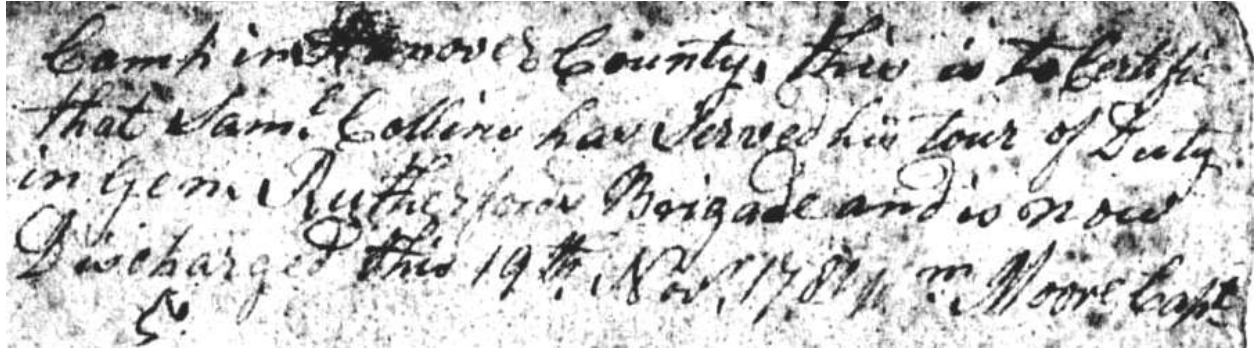 Camp in Hanover County, this is to Certifie
that Sam.l Collins has Served his tour of Duty
in Gen. Rutherfords Brigade and is now
Discharged this 19th. Nov. 1781 Wm. Moore Capt